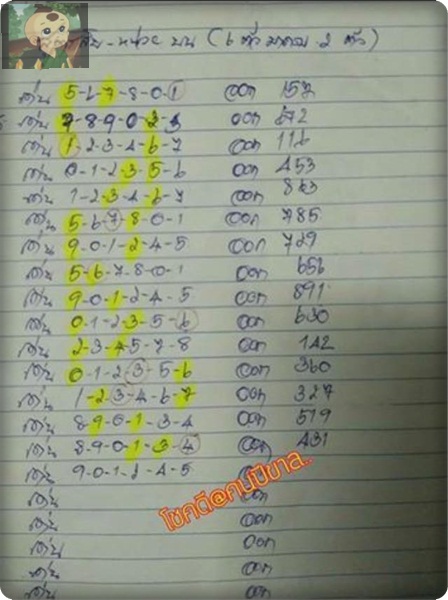 สิบ-หน่วย บน (6 ตัว มาครบ 2 ตัว)
เด่น 5-6-7-8-0-1 ออก 157
เด่น 7-8-9-0-2-3 ออก 872
เด่น 1-2-3-4-6-7 ออก 116
เด่น 0-1-2-3-5-6 ออก 453
เด่น 1-2-3-4-6-7 ออก
เด่น 5-6-7-8-0-1 ออก 785
เด่น 9-0-1-2-4-5 ออก 729
เด่น 5-6-7-8-0-1 ออก 656
เด่น 9-0-1-2-4-5 ออก 891
เด่น 0-1-2-3-5-6 ออก 630
เด่น 2-3-4-5-7-8 ออก 142
เด่น 0-1-2-3-5-6 ออก 360
เด่น 1-2-3-4-6-7 ออก 327
เด่น 8-9-0-1-3-4 ออก 519
เด่น 8-9-0-1-3-4 ออก 431
เด่น 9-0-1-2-4-5 ออก
โชคดี@คนปีขาล..
เด่น ออก
เด่น ออก
เด่น ออก
เด่น ออก
เด่น ออก